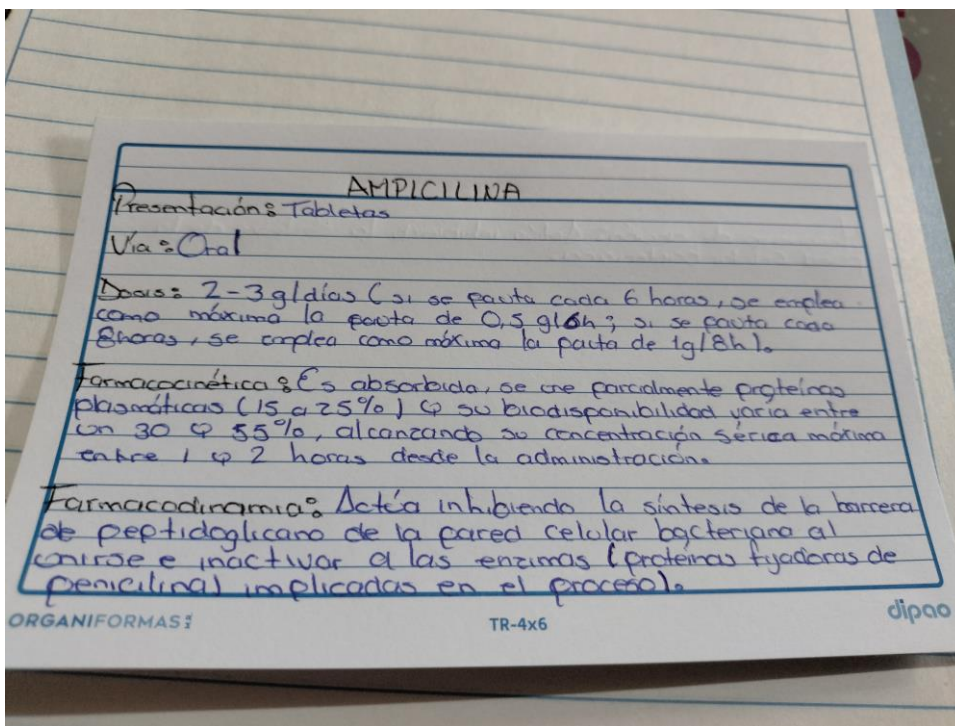 AMPICILINA
Presentación: Tabletas
Vía: Oral
Dosis: 2-3 g/días (si se pauta cada 6 horas, se emplea
como máximo la pauta de 0,5 g/6h; si se pauta cada
8horas, se emplea como máximo la pauta de 1g/8h).
Farmacocinética: Es absorbida, se une parcialmente proteínas
plasmáticas (15 a 25%) y su biodisponibilidad varia entre
un 30 y 55%, alcanzando su concentración sérica máxima
entre 1 y 2 horas desde la administración.
Farmacodinamia: Actúa inhibiendo la síntesis de la barrera
de peptidoglicano de la pared celular bacteriana al
unirse e inactivar a las enzimas (proteínas fijadoras de
penicilina) implicadas en el proceso).
ORGANIFORMAS TR-4x6 dipao